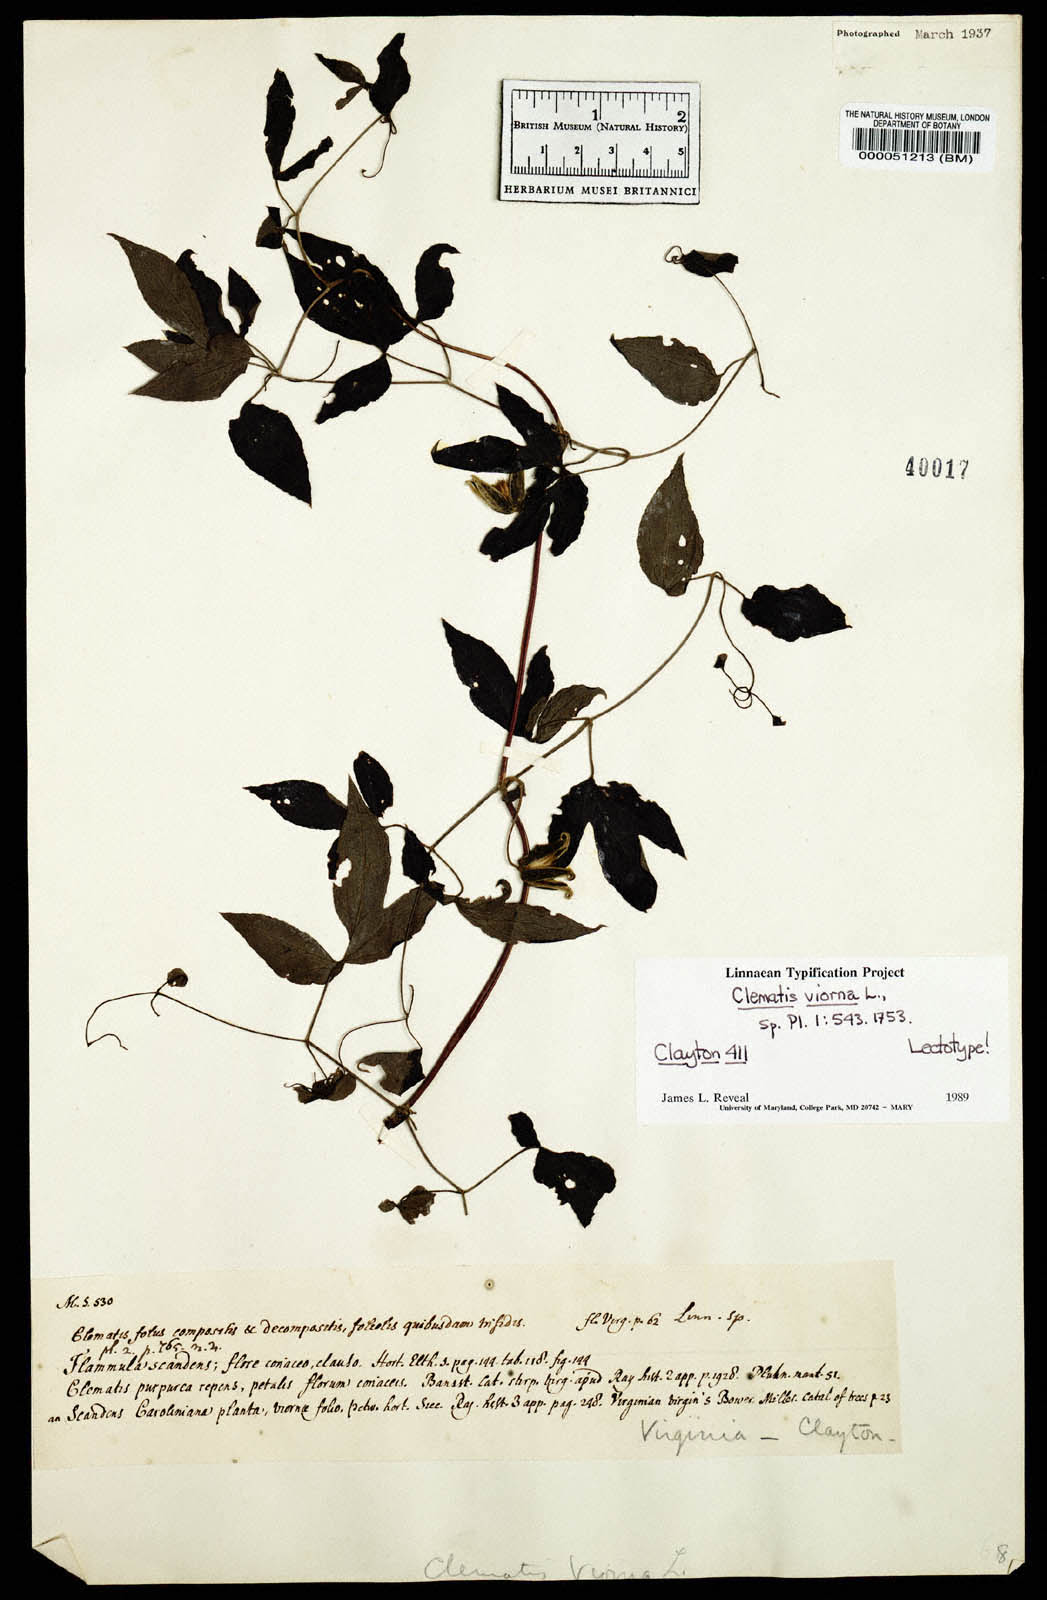 Photographed March 1937
THE NATURAL HISTORY MUSEUM, LONDON
DEPARTMENT OF BOTANY
000051213 (BM)
1 2
BRITISH MUSEUM (NATURAL HISTORY)
1 2 3 4 5
HERBARIUM MUSEI BRITANNICI
40017
Linnaean Typification Project
Clematis viorna L.,
Sp. Pl. 1:543. 1753.
Clayton 411 Lectotype!
James L. Reveal 1989
University of Maryland, College Park, MD 20742 – MARY
530
Clematis foliis compositis & decompositis, foliolis quibusdam trifidis. fl. Virg. p. 62 Linn. Sp.
pl. 2. p. 765. n. 4.
Flammula scandens; flore coriaceo, clauso. Hort. Elth. s. pag. 144 tab. 118. fig. 144
Clematis purpurea repens, petalis florum coriaceis. Banist. Cat. stirp. virg. apud Ray hist. 2 app. p. 1928. Pluk. mant. 51.
an Scandens Caroliniana planta, viornæ folio. Petiv. hort. Sicc. Ray. hist. 3 app. pag. 248. Virginian virgin's Bower. Catal of trees p 23
Virginia – Clayton –
Clematis Viorna L.